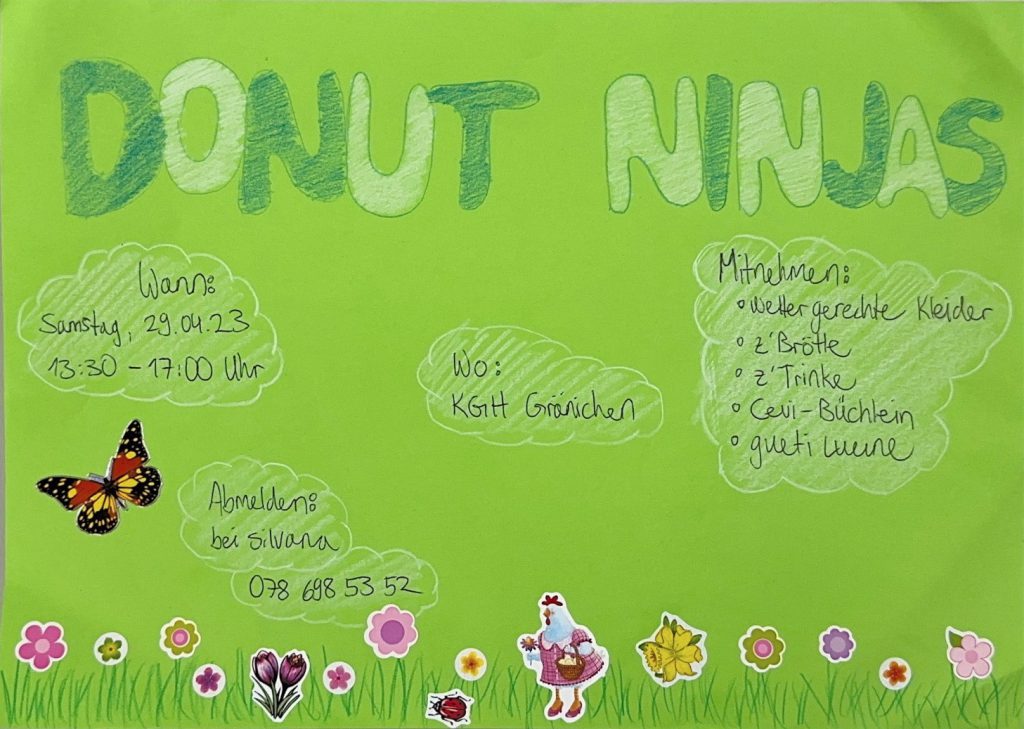 DONUT NINJAS
Wann:
Samstag, 29.04.23
13:30 - 17:00 Uhr
Wo:
KGH Gränichen
Mitnehmen:
• wettergerechte Kleider
• z'Brötle
• z'Trinke
• Cevi-Büchlein
• gueti Luune
Abmelden:
bei Silvana
078 698 53 52